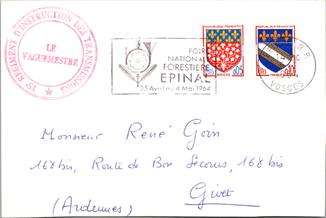 18e REGIMENT D'INSTRUCTION DES TRANSMISSIONS
LE
VAGUEMESTRE
FOIRE
NATIONALE
FORESTIERE
EPINAL
25 Avril au 4 Mai 1964
0,05
VOSGES
Monsieur René Goin
168 bis, Route de Bon Secours, 168 bis
Givet
(Ardennes)